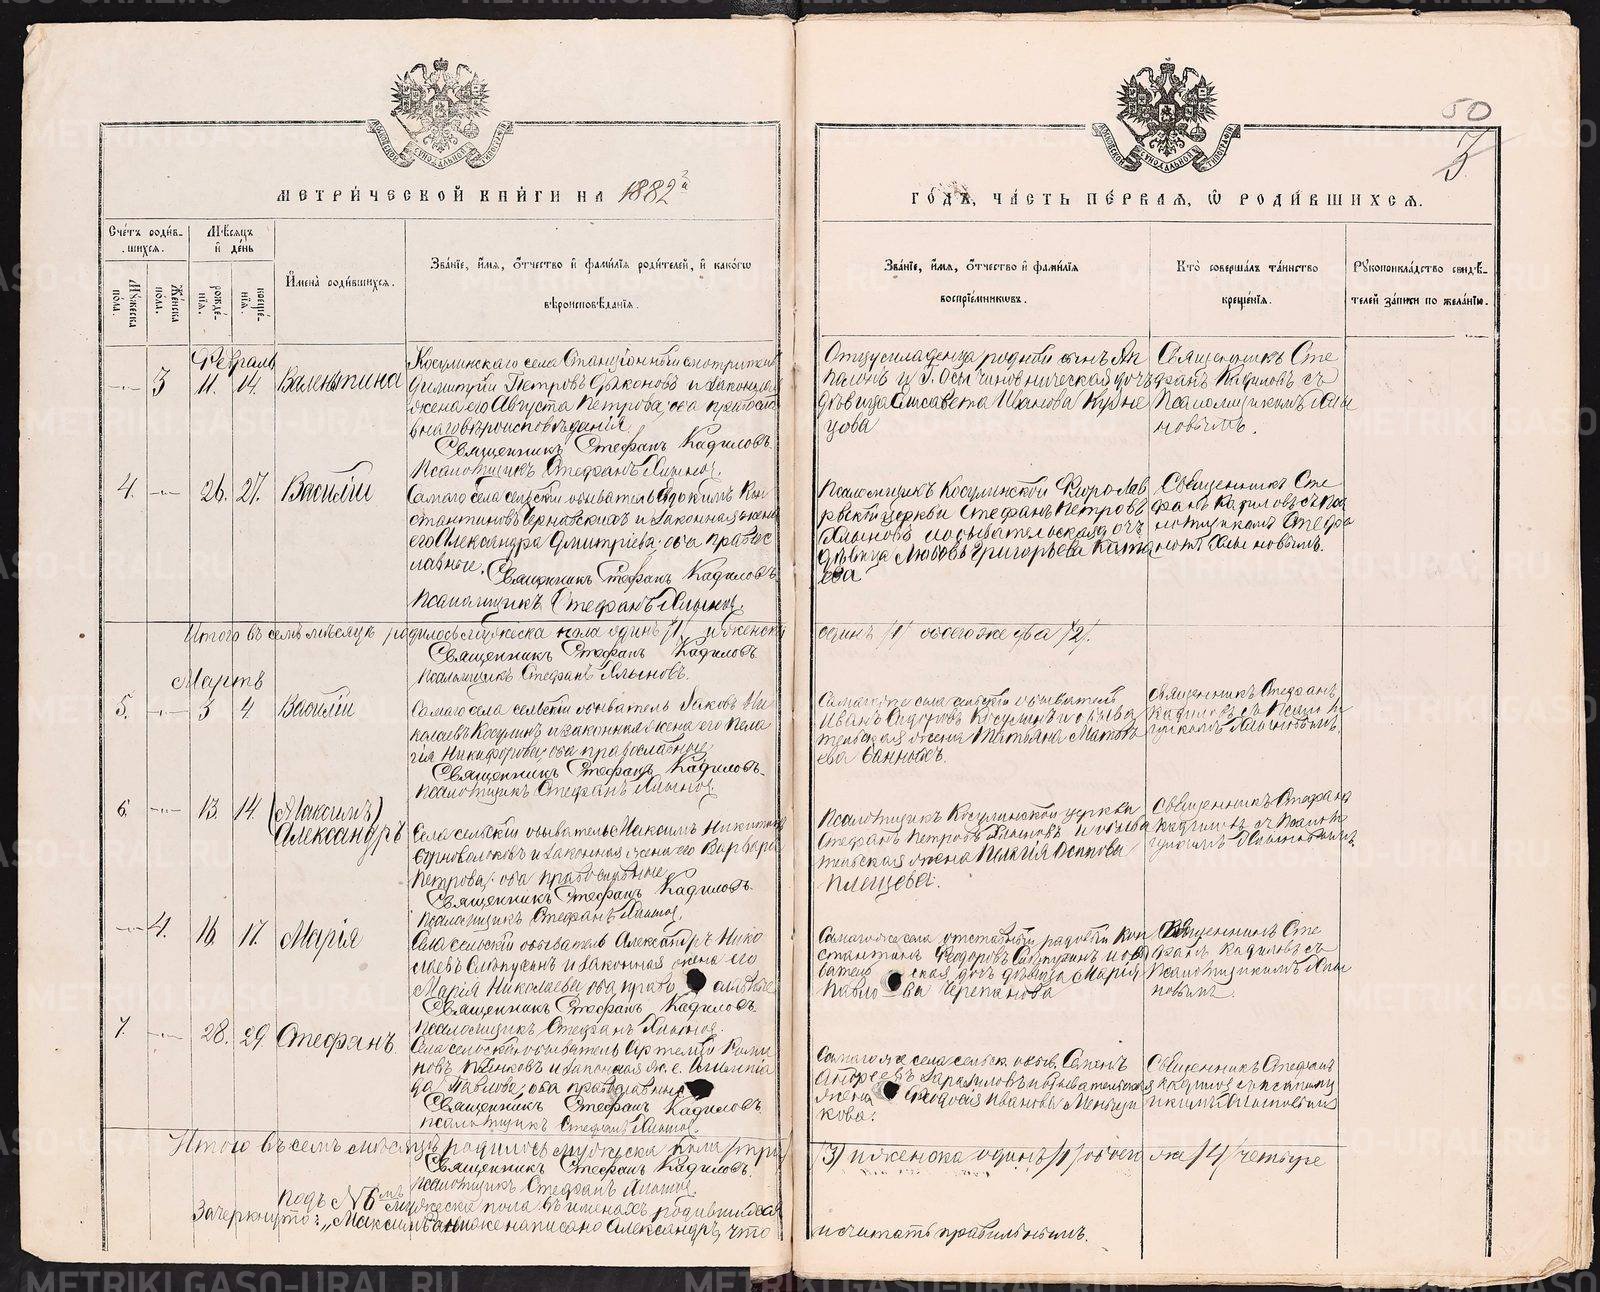 50
3
МЕТРИ́ЧЕСКОЙ КНИ́ГИ НА 1882 й
ГО́ДЪ, ЧА́СТЬ ПЕ́РВАЯ, Ѡ РОДИ́ВШИХСЯ.
Сче́тъ роди́вшихся.
Мꙋ́жеска по́ла.
Же́нска по́ла.
Мѣ́сяцъ и҆ де́нь
рожде́нїя.
креще́нїя.
И҆мена̀ роди́вшихся.
Зва́нїе, и҆́мя, ѻ҆́тчество и҆ фами́лїя роди́телей, и҆ како́гѡ
вѣроисповѣ́данїя.
Зва́нїе, и҆́мя, ѻ҆́тчество и҆ фами́лїя
воспрїе́мниковъ.
Кто̀ соверша́лъ та́инство
креще́нїя.
Рꙋкоприкла́дство свидѣ́-
телей за́писи по жела́нїю.
Февраль
3 11. 14. Валентина
Косулинскаго села Станціонный смотритель
Димитрій Петровъ Дьяконовъ и законная
жена его Августа Петрова, оба православ
наго вѣроисповѣданія.
Священникъ Стефанъ Кадиловъ.
Псаломщикъ Стефанъ Хлыновъ.
чиновническая дочь
дѣвица Елисавета Иванова Кузне
цова
Священникъ Сте
фанъ Кадиловъ съ
Псаломщикомъ Хлы
новымъ.
4. 26. 27. Василій
Самаго села сельскій обыватель Евдокимъ Кон
стантиновъ Чернавскихъ и законная жена
его Александра Дмитріева, оба правос
лавные.
Священникъ Стефанъ Кадиловъ.
Псаломщикъ Стефанъ Хлыновъ.
Псаломщикъ Косулинской Флоролав
рской церкви Стефанъ Петровъ
Хлыновъ и обывательская дочь
дѣвица Любовь Григорьева Ката
ева
Священникъ Сте
фанъ Кадиловъ съ Пса
ломщикомъ Стефа
номъ Хлыновымъ.
Итого въ семъ мѣсяцѣ родилось мужеска пола одинъ /1/ и женска
одинъ /1/ обоего же два /2/.
Священникъ Стефанъ Кадиловъ
Псаломщикъ Стефанъ Хлыновъ.
Мартъ
5. 3 4 Василій
Самаго села сельскій обыватель Іаковъ Ни
колаевъ Косулинъ и законная жена его Пела
гія Никифорова, оба православные
Священникъ Стефанъ Кадиловъ.
Псаломщикъ Стефанъ Хлыновъ
Самаго же села сельскій обыватель
Иванъ Сидоровъ Косулинъ и обыва
тельская жена Татьяна Матвѣ
ева
Священникъ Стефанъ
Кадиловъ съ Псаломщ
икомъ Хлыновымъ.
6. 13. 14. (Максимъ)
Александръ
Села сельскій обыватель Максимъ Никитинъ
и законная жена его Варвара
Петрова, оба православные
Священникъ Стефанъ Кадиловъ.
Псаломщикъ Стефанъ Хлыновъ.
Псаломщикъ Косулинской церкви
Стефанъ Петровъ Хлыновъ и обыва
тельская жена Пелагія Осипова
Плещева.
Священникъ Стефанъ
Кадиловъ съ Псалом
щикомъ Хлыновымъ.
4. 16. 17. Марія
Села сельскій обыватель Александръ Нико
лаевъ и законная жена его
Марія Николаева, оба православные
Священникъ Стефанъ Кадиловъ.
Псаломщикъ Стефанъ Хлыновъ.
Самаго же села отставной рядовой Кон
стантинъ Ѳедоровъ и обы
вательская дочь дѣвица Марія
Павлова Черепанова
Священникъ Сте
фанъ Кадиловъ съ
Псаломщикомъ Хлы
новымъ.
7. 28. 29. Стефанъ.
Села сельскій обыватель Артемій
и законная ж. е.
Павлова, оба православные
Священникъ Стефанъ Кадиловъ
Псаломщикъ Стефанъ Хлыновъ.
Самаго же села сельск. обыв. Семенъ
Андреевъ и обывательская
жена Ѳеодосія Иванова
кова.
Священникъ Стефанъ
Кадиловъ съ псаломщ
икомъ Хлыновымъ
Итого въ семъ мѣсяцѣ родилось мужеска пола /три/
/3/ и женска одинъ /1/ обоего же /4/ четыре
Священникъ Стефанъ Кадиловъ.
Псаломщикъ Стефанъ Хлыновъ.
Подъ № 6мъ мужеска пола въ именахъ родившихся
Зачеркнуто: „Максимъ" а ниже написано Александръ, что
и считать правильнымъ.
METRIKI.GASO-URAL.RU